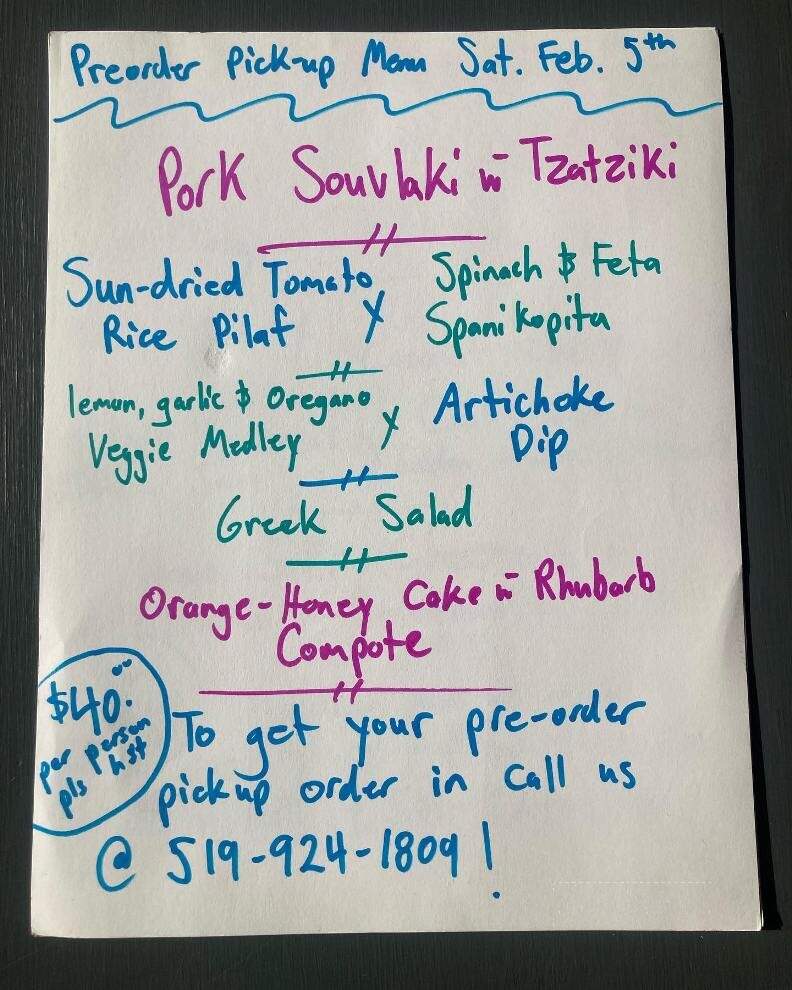 Preorder Pick-up Menu Sat. Feb. 5th
Pork Souvlaki w- Tzatziki
Sun-dried Tomato
Rice Pilaf
Spinach & Feta
Spanikopita
lemon, garlic & Oregano
Veggie Medley
Artichoke
Dip
Greek Salad
Orange-Honey Cake w- Rhubarb
Compote
$40.00
per person
pls hst
To get your pre-order
pickup order in call us
@ 519-924-1809!